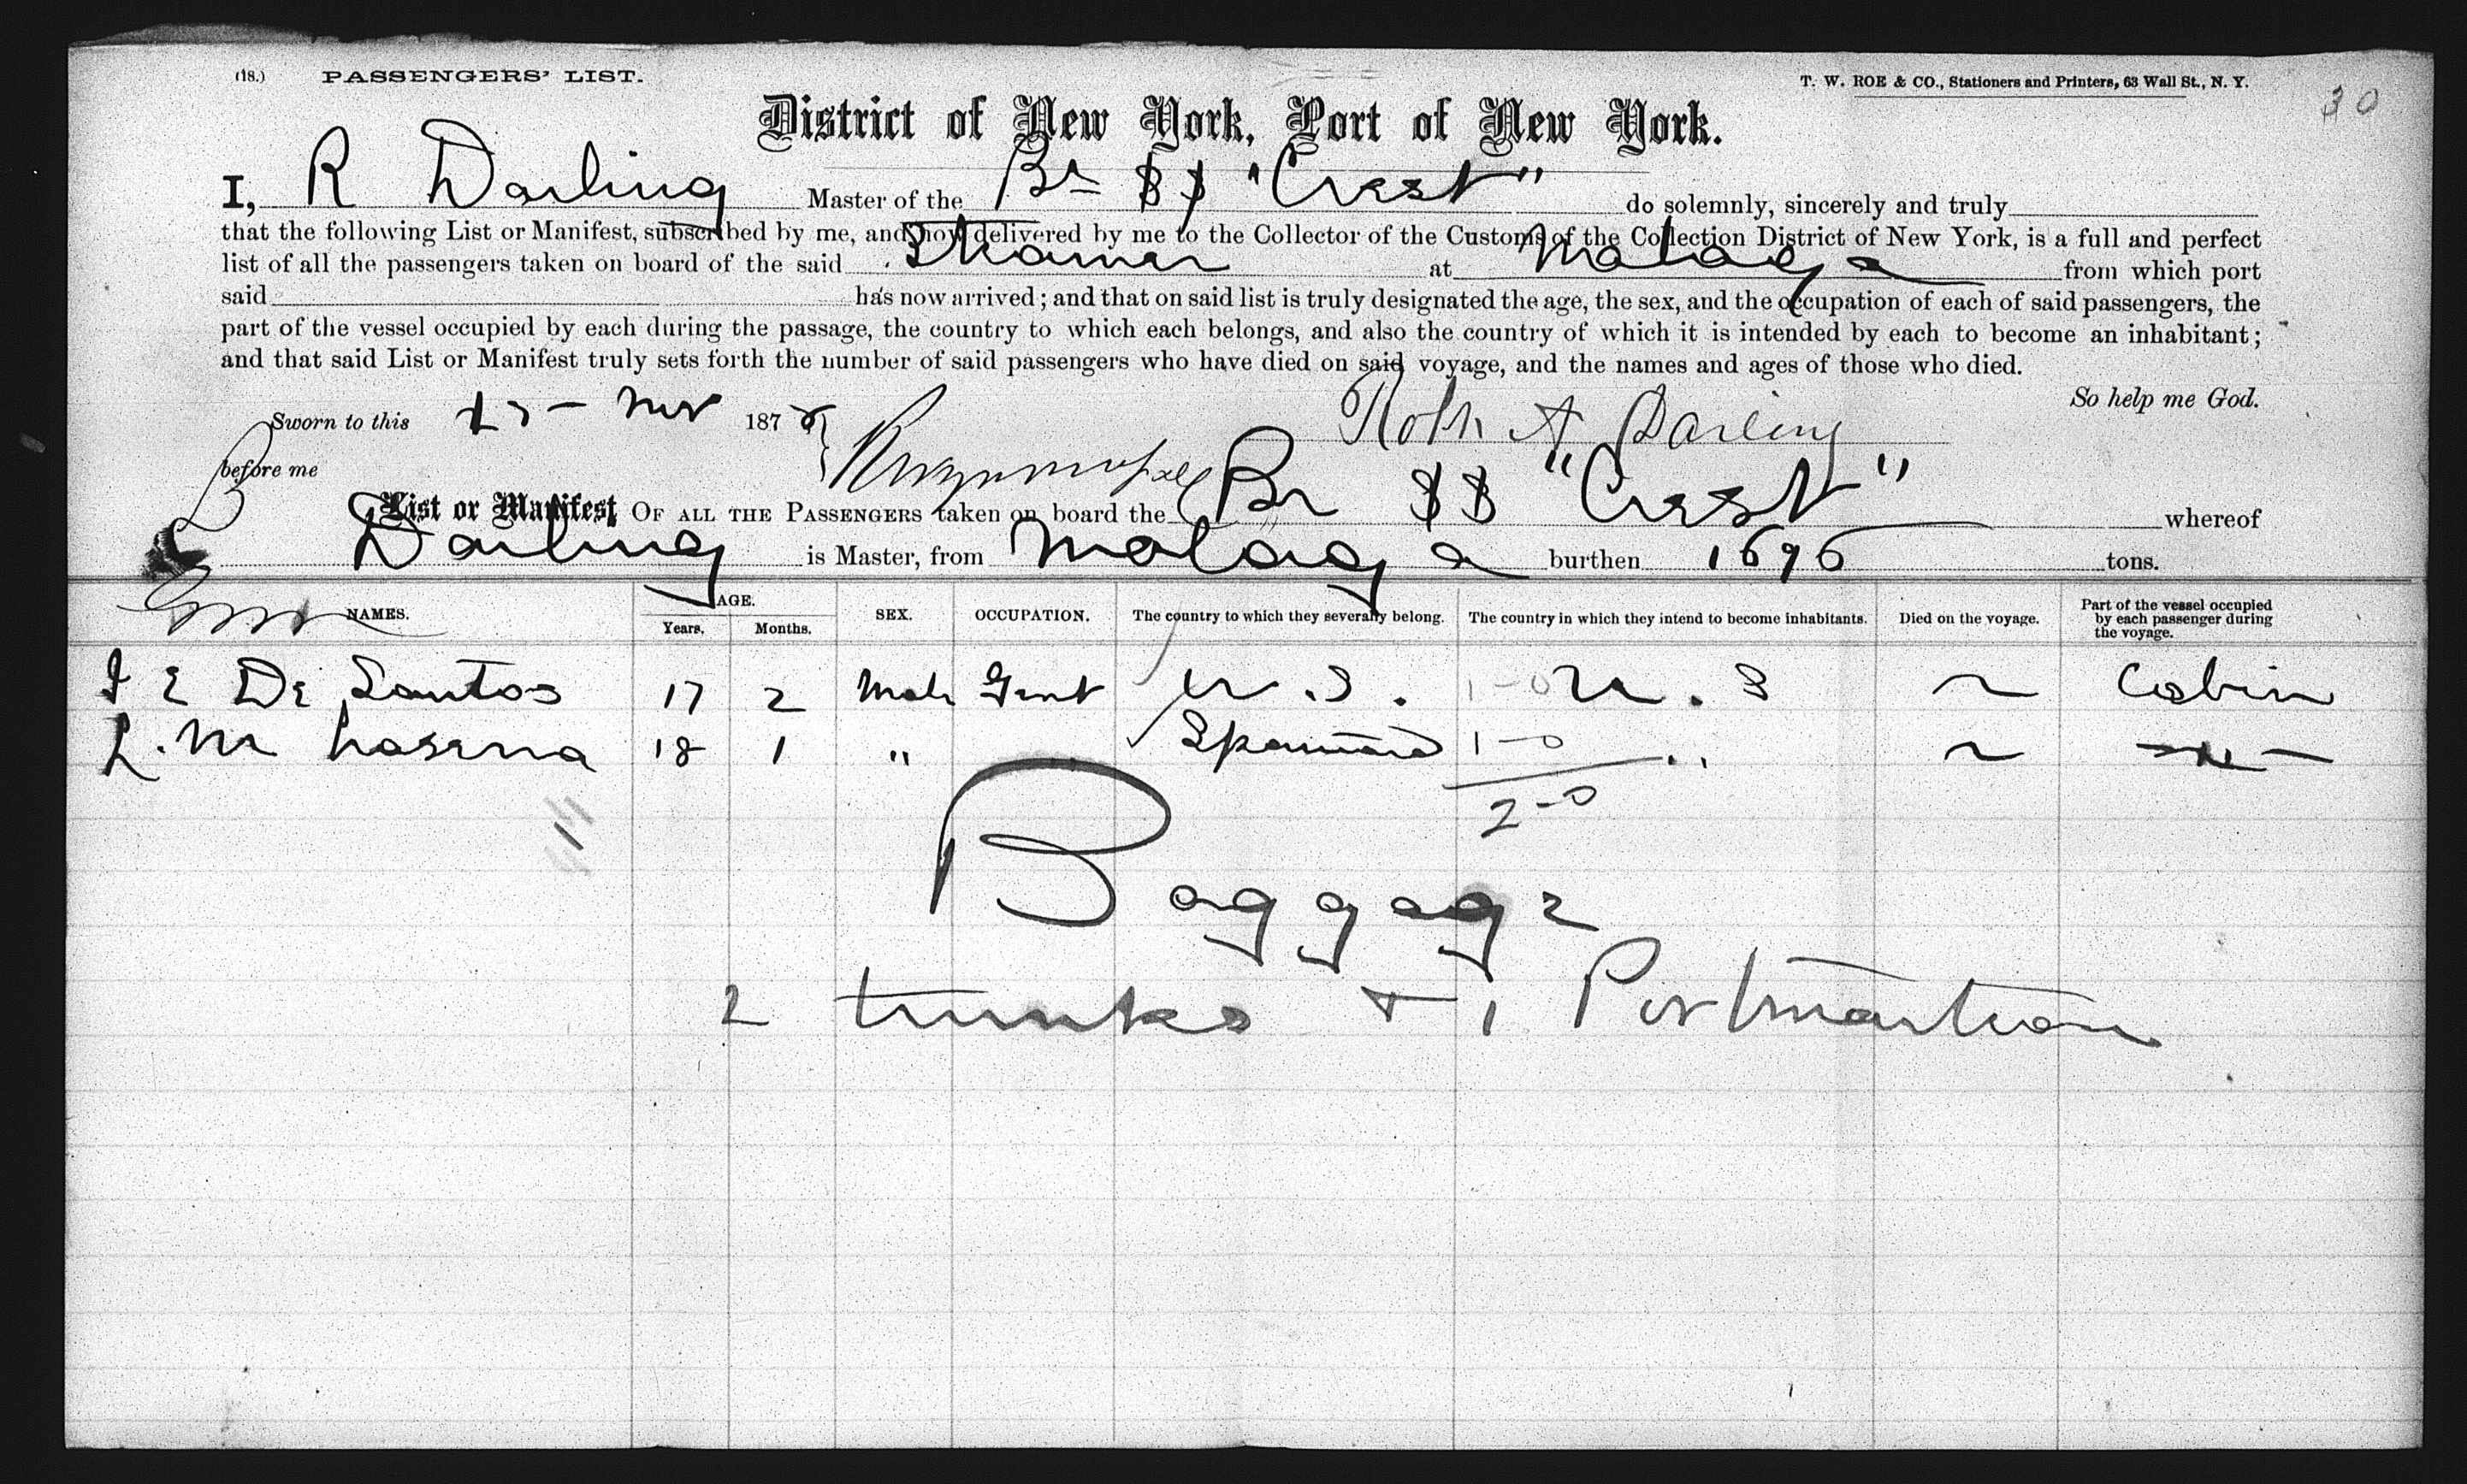 (18.) PASSENGERS' LIST. T. W. ROE & CO., Stationers and Printers, 63 Wall St., N. Y. 30
District of New York, Port of New York.
I, R Darling Master of the Br SS "Crest" do solemnly, sincerely and truly
that the following List or Manifest, subscribed by me, and now delivered by me to the Collector of the Customs of the Collection District of New York, is a full and perfect
list of all the passengers taken on board of the said Steamer at Malaga from which port
said has now arrived; and that on said list is truly designated the age, the sex, and the occupation of each of said passengers, the
part of the vessel occupied by each during the passage, the country to which each belongs, and also the country of which it is intended by each to become an inhabitant;
and that said List or Manifest truly sets forth the number of said passengers who have died on said voyage, and the names and ages of those who died.
So help me God.
Sworn to this Nov 187 Robt A Darling
before me
List or Manifest OF ALL THE PASSENGERS taken on board the Br SS "Crest" whereof
Darling is Master, from Malaga burthen 1696 tons.
NAMES. AGE. Years. Months. SEX. OCCUPATION. The country to which they severally belong. The country in which they intend to become inhabitants. Died on the voyage. Part of the vessel occupied by each passenger during the voyage.
De Santos 17 2 Male Gent U.S. 1-0 U.S ~ Cabin
L. M 18 1 " Spaniard 1-0 " ~
2-0
Baggage
2 trunks + 1 Portmanteau